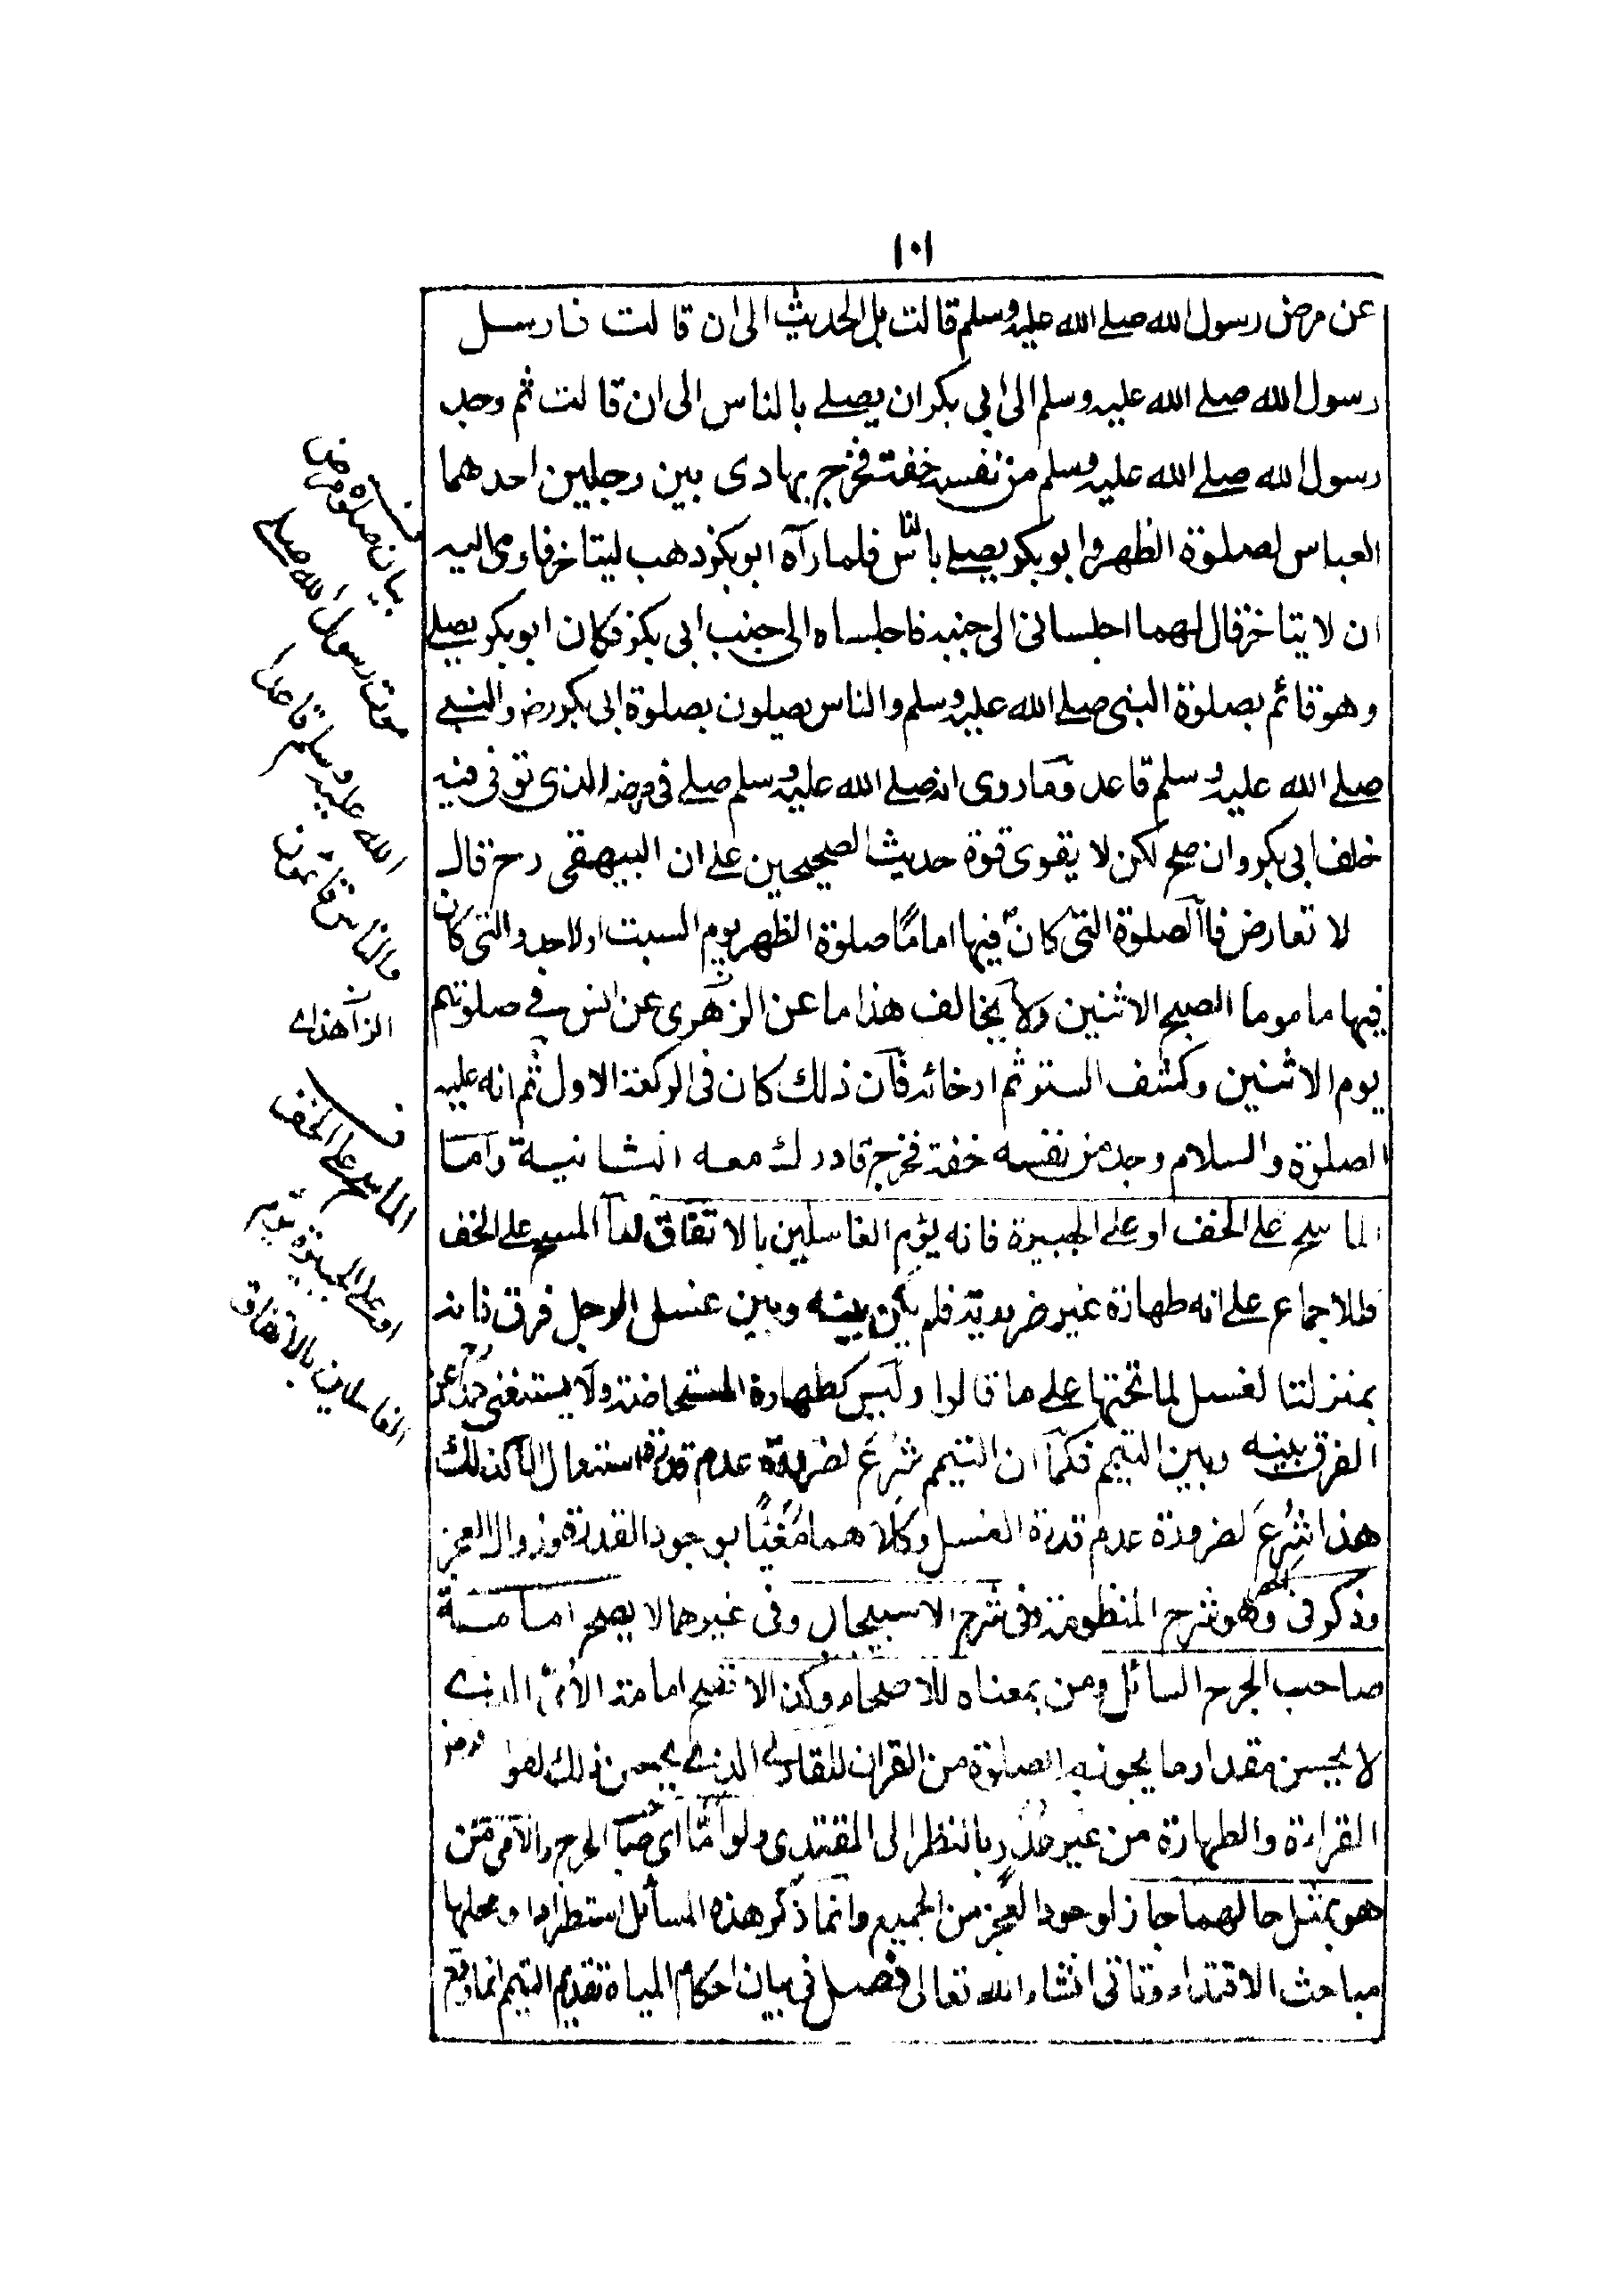 ١٠١
عن مرض رسول الله صلے الله عليه وسلم قالت بل الحديث الى ان قالت فارسل
رسول الله صلے الله عليه وسلم الى ابي بكر ان يصلے بالناس الى ان قالت ثم وجد
رسول الله صلے الله عليه وسلم من نفسه خفة فخرج يهادى بين رجلين احدهما
العباس لصلوة الظهر وابوبكر يصلے بالناس فلما رآه ابوبكر ذهب ليتاخر فاومى اليه
ان لا يتاخر قال لهما اجلسانى الى جنبه فاجلساه الى جنب ابى بكر فكان ابوبكر يصلے
وهو قائم بصلوة النبى صلے الله عليه وسلم والناس يصلون بصلوة ابى بكر رض والنبے
صلے الله عليه وسلم قاعد وما روى انه صلے الله عليه وسلم صلے فى مرضه الذى توفى فيه
خلف ابى بكر وان صح لكن لا يقوى قوة حديث الصحيحين على ان البيهقى رح قال
لا تعارض فالصلوة التى كان فيها اماما صلوة الظهر يوم السبت او الاحد والتى كان
فيها ماموما الصبح الاثنين ولا يخالف هذا ما عن الزهرى عن انس فے صلوتهم
يوم الاثنين وكشف الستر ثم ارخائه فان ذلك كان فى الركعة الاول ثم انه عليه
الصلوة والسلام وجد من نفسه خفة فخرج فادرك معه الثانية واما
الماسح على الخف او على الجبيرة فانه يؤم الغاسلين بالاتفاق لما المسح على الخف
فللاجماع على انه طهارة غير ضرورية فلم يكن بينه وبين غسل الرجل فرق فانه
بمنزلة الغسل لما تحتها على ما قالوا وليس كطهارة المستحاضة ولا يستغنى عن
الفرق بينه وبين التيمم فكما ان التيمم شُرِعَ لضرورة عدم قدرة استعمال الماء كذلك
هذا شُرِعَ لضرورة عدم قدرة الغسل وكلاهما مُغَيًّا بوجود القدرة وزوال العجز
وذكر فى وهو شرح المنظومة وفى شرح الاسبيجابى وفى غيرهما لا يصح امامة
صاحب الجرح السائل ومن بمعناه للاصحاء وكذا لا تصح امامة الأمى الذے
لا يحسن مقدار ما يجوز به الصلوة من القران للقارے الذے يحسن ذلك لفوا
القراءة والطهارة من غير عذر بالنظر الى المقتدى ولو امّا اى صاحب الجرح والامى من
هو بمثل حالهما جاز لوجود العجز من الجميع وانما ذكر هذه المسائل استطرادا ومحلها
مباحث الاقتداء وتاتى انشاء الله تعالى فصل فى بيان احكام المياه تقديم التيمم انما وقع
بيان صلوة مرض
موت رسول الله صلے
الله عليه وسلم قاعدا
والناس قائمون
الماسح على الخف
او على الجبيرة يؤم
الغاسلين بالاتفاق